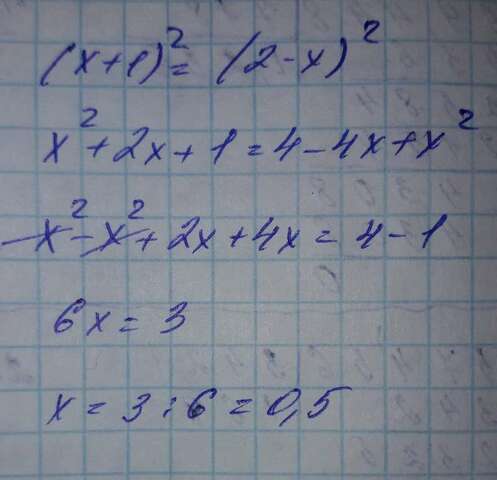 (x+1)² = (2-x)²
x² + 2x + 1 = 4 - 4x + x²
x² - x² + 2x + 4x = 4 - 1
6x = 3
x = 3 : 6 = 0,5